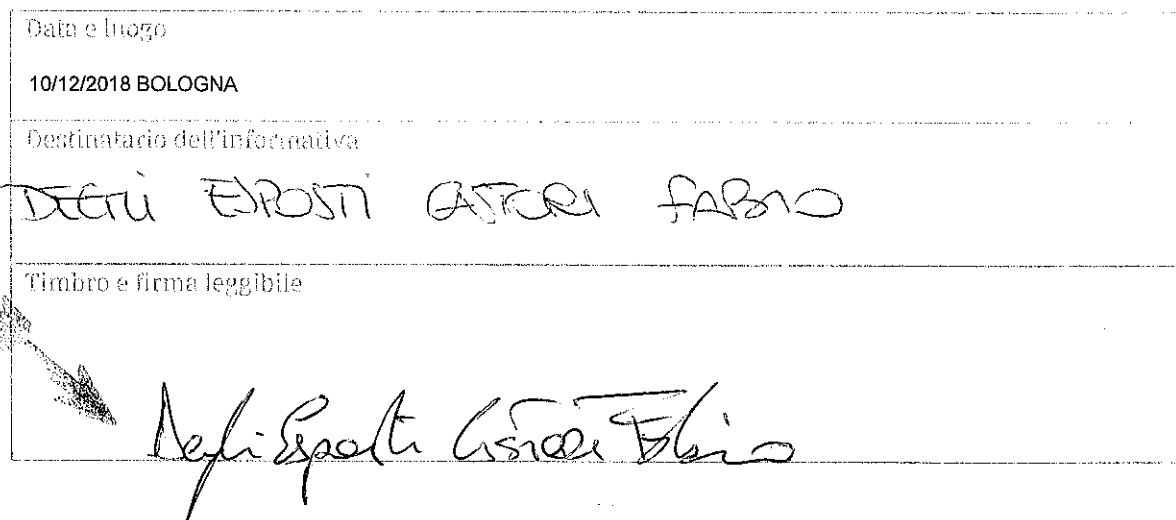 Data e luogo
10/12/2018 BOLOGNA
Destinatario dell'informativa
DEGLI ESPOSTI CASTORI FABIO
Timbro e firma leggibile
Degli Esposti Castori Fabio